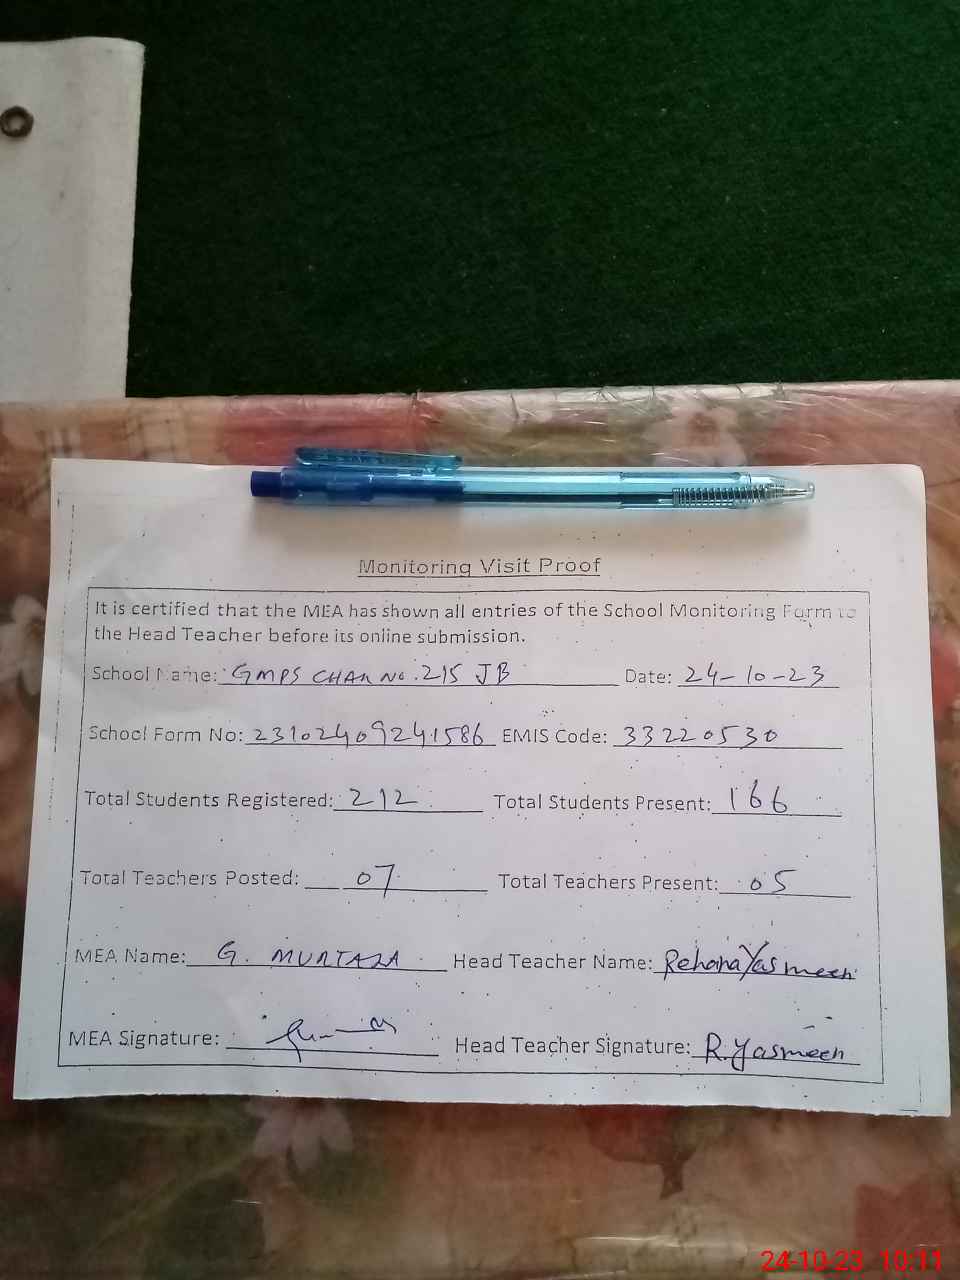 Monitoring Visit Proof
It is certified that the MEA has shown all entries of the School Monitoring Form to
the Head Teacher before its online submission.
School Name: GMPS CHAK NO. 215 JB Date: 24-10-23
School Form No: 23102409241586 EMIS Code: 33220530
Total Students Registered: 212 Total Students Present: 166
Total Teachers Posted: 07 Total Teachers Present: 05
MEA Name: G. MURTAZA Head Teacher Name: Rehana Yasmeen
MEA Signature: Head Teacher Signature: R. Yasmeen
24-10-23 10:11